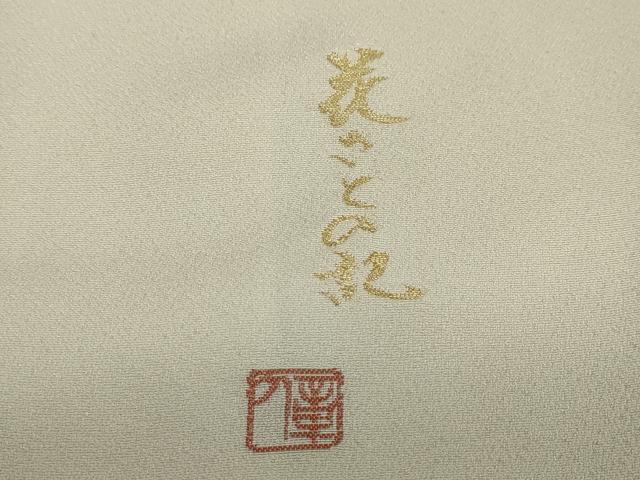 花ことの記